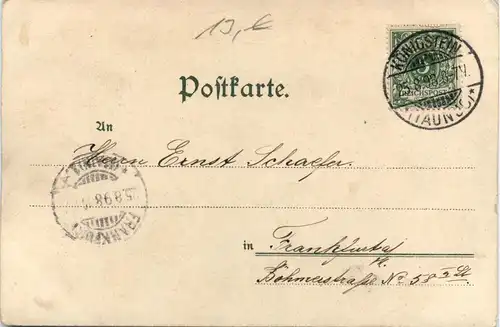 13,-€
KÖNIGSTEIN
5
REICHSPOST
(TAUNUS)
Postkarte.
An
Herrn Ernst Schaefer.
5.8.98
FRANKFURT
in Frankfurt a/
Böhmerstraße No 58